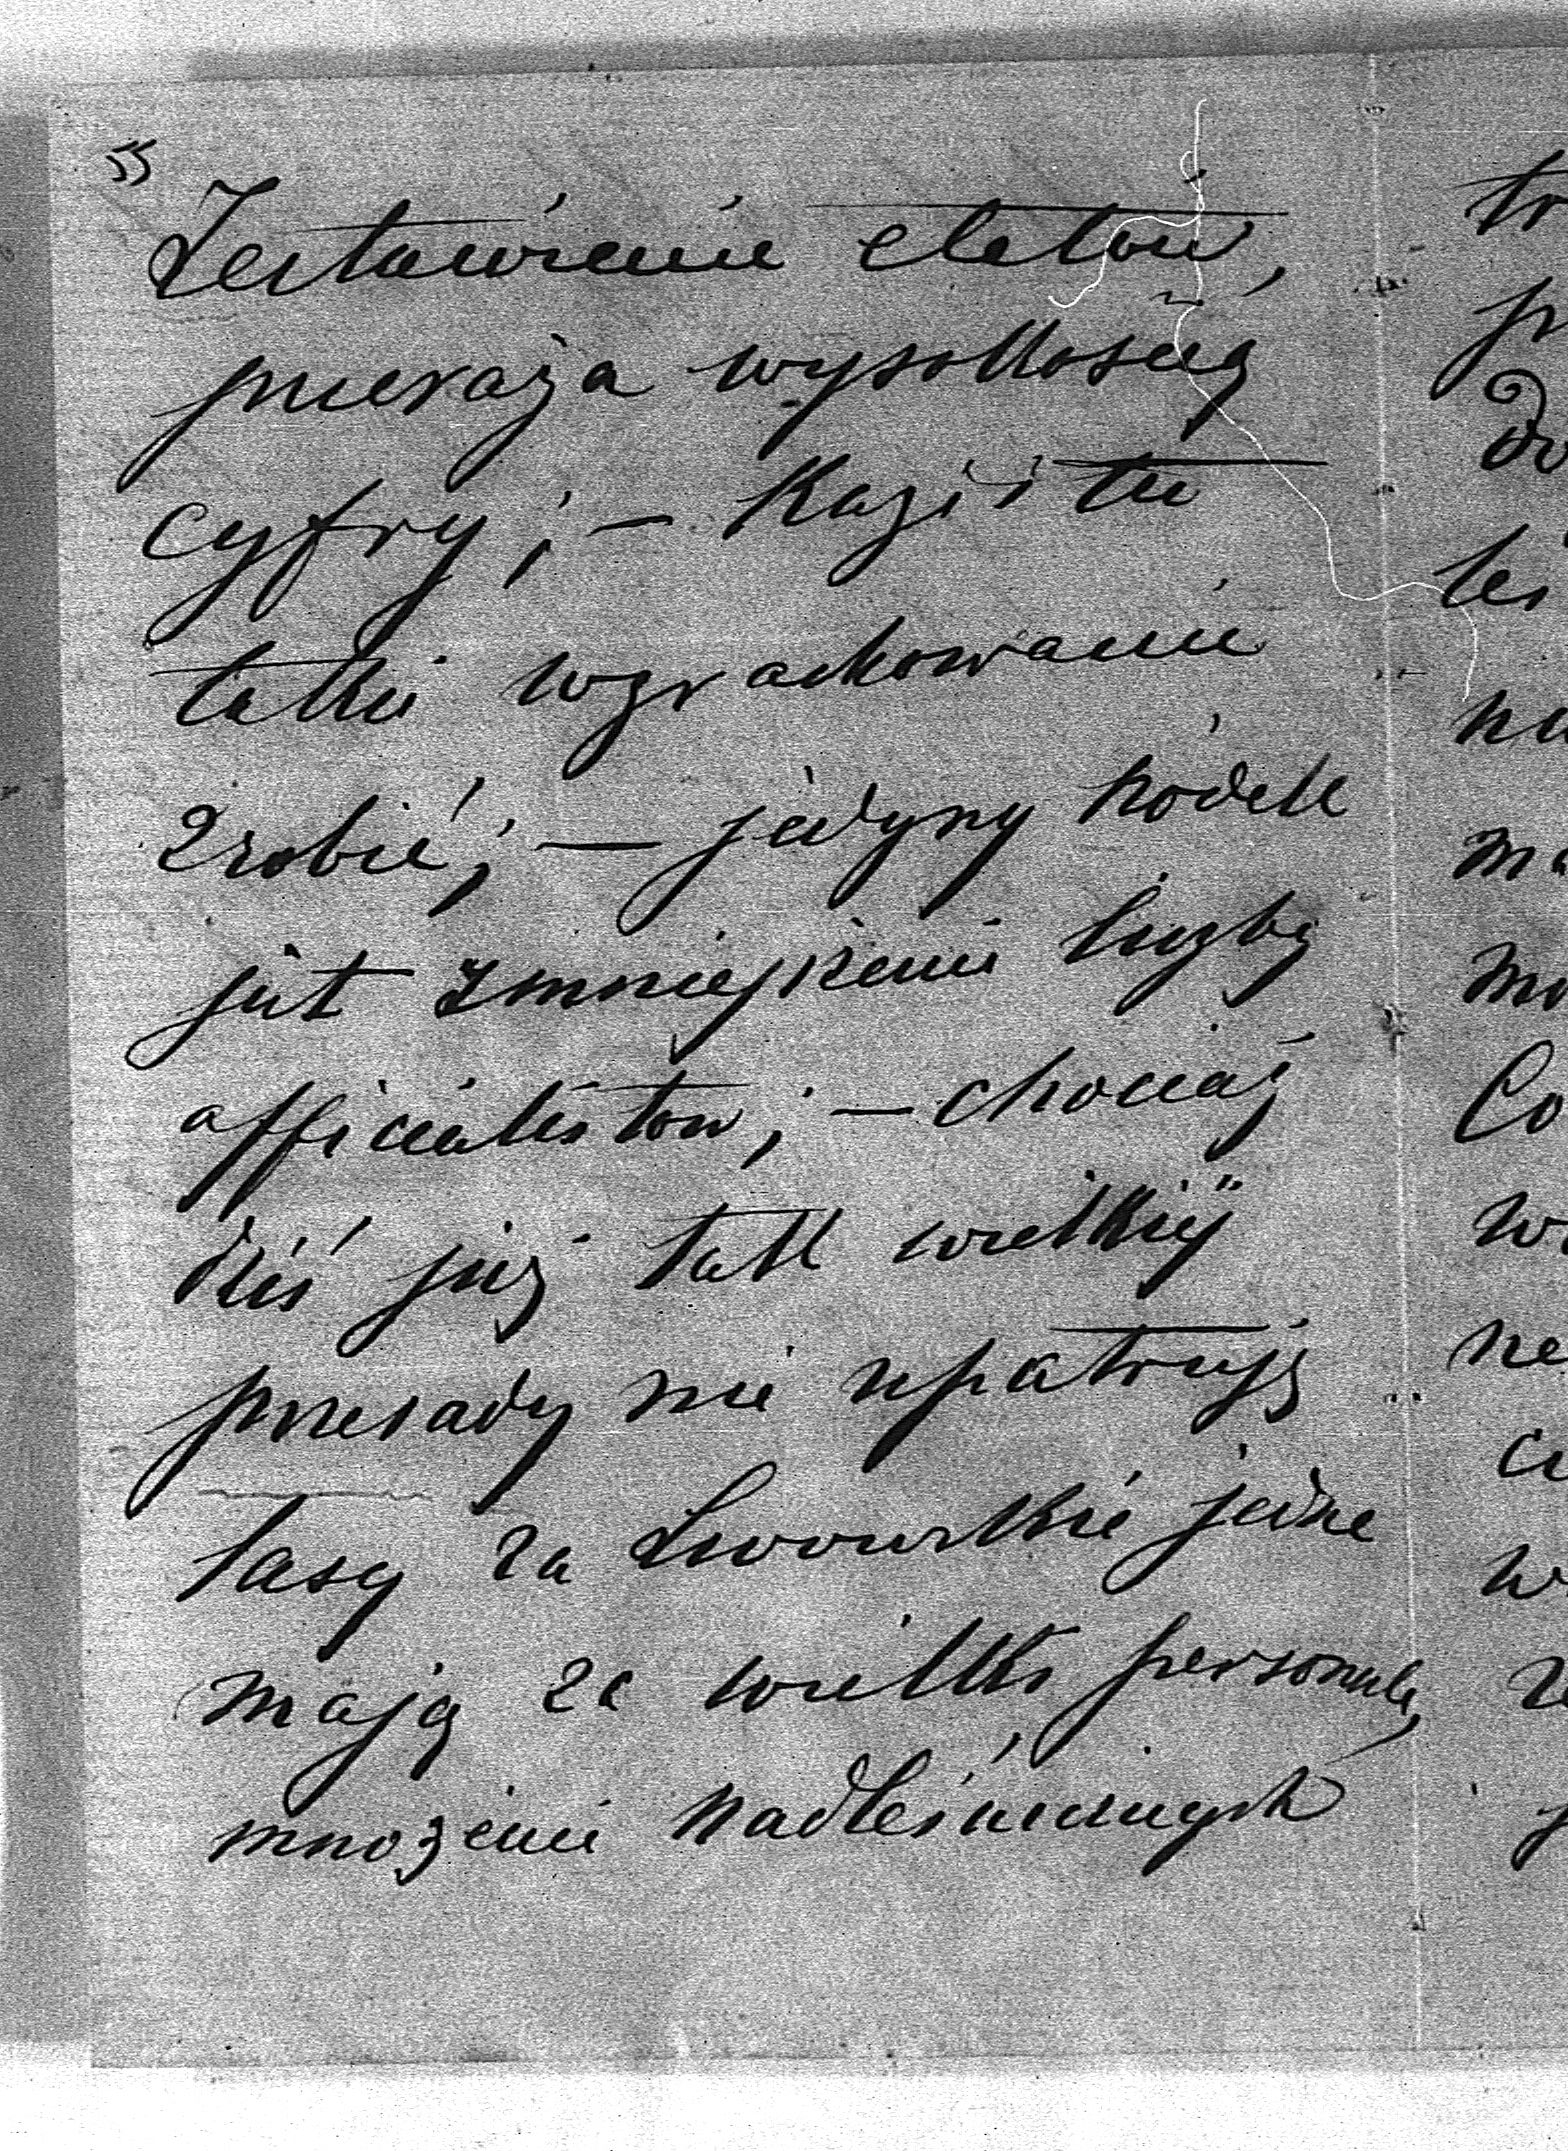 55
Zestawienie etatów,
przeraża wysokością
cyfry; — Każ i tu
takie wyrachowanie
zrobić; — jedyny środek
jest zmniejszenie liczby
officialistów; — chociaż
dziś już tak wielkiej
przesady nie upatruję
lasy za Lwowskie jedne
mają za wielki personal,
mnożenie nadleśniczych